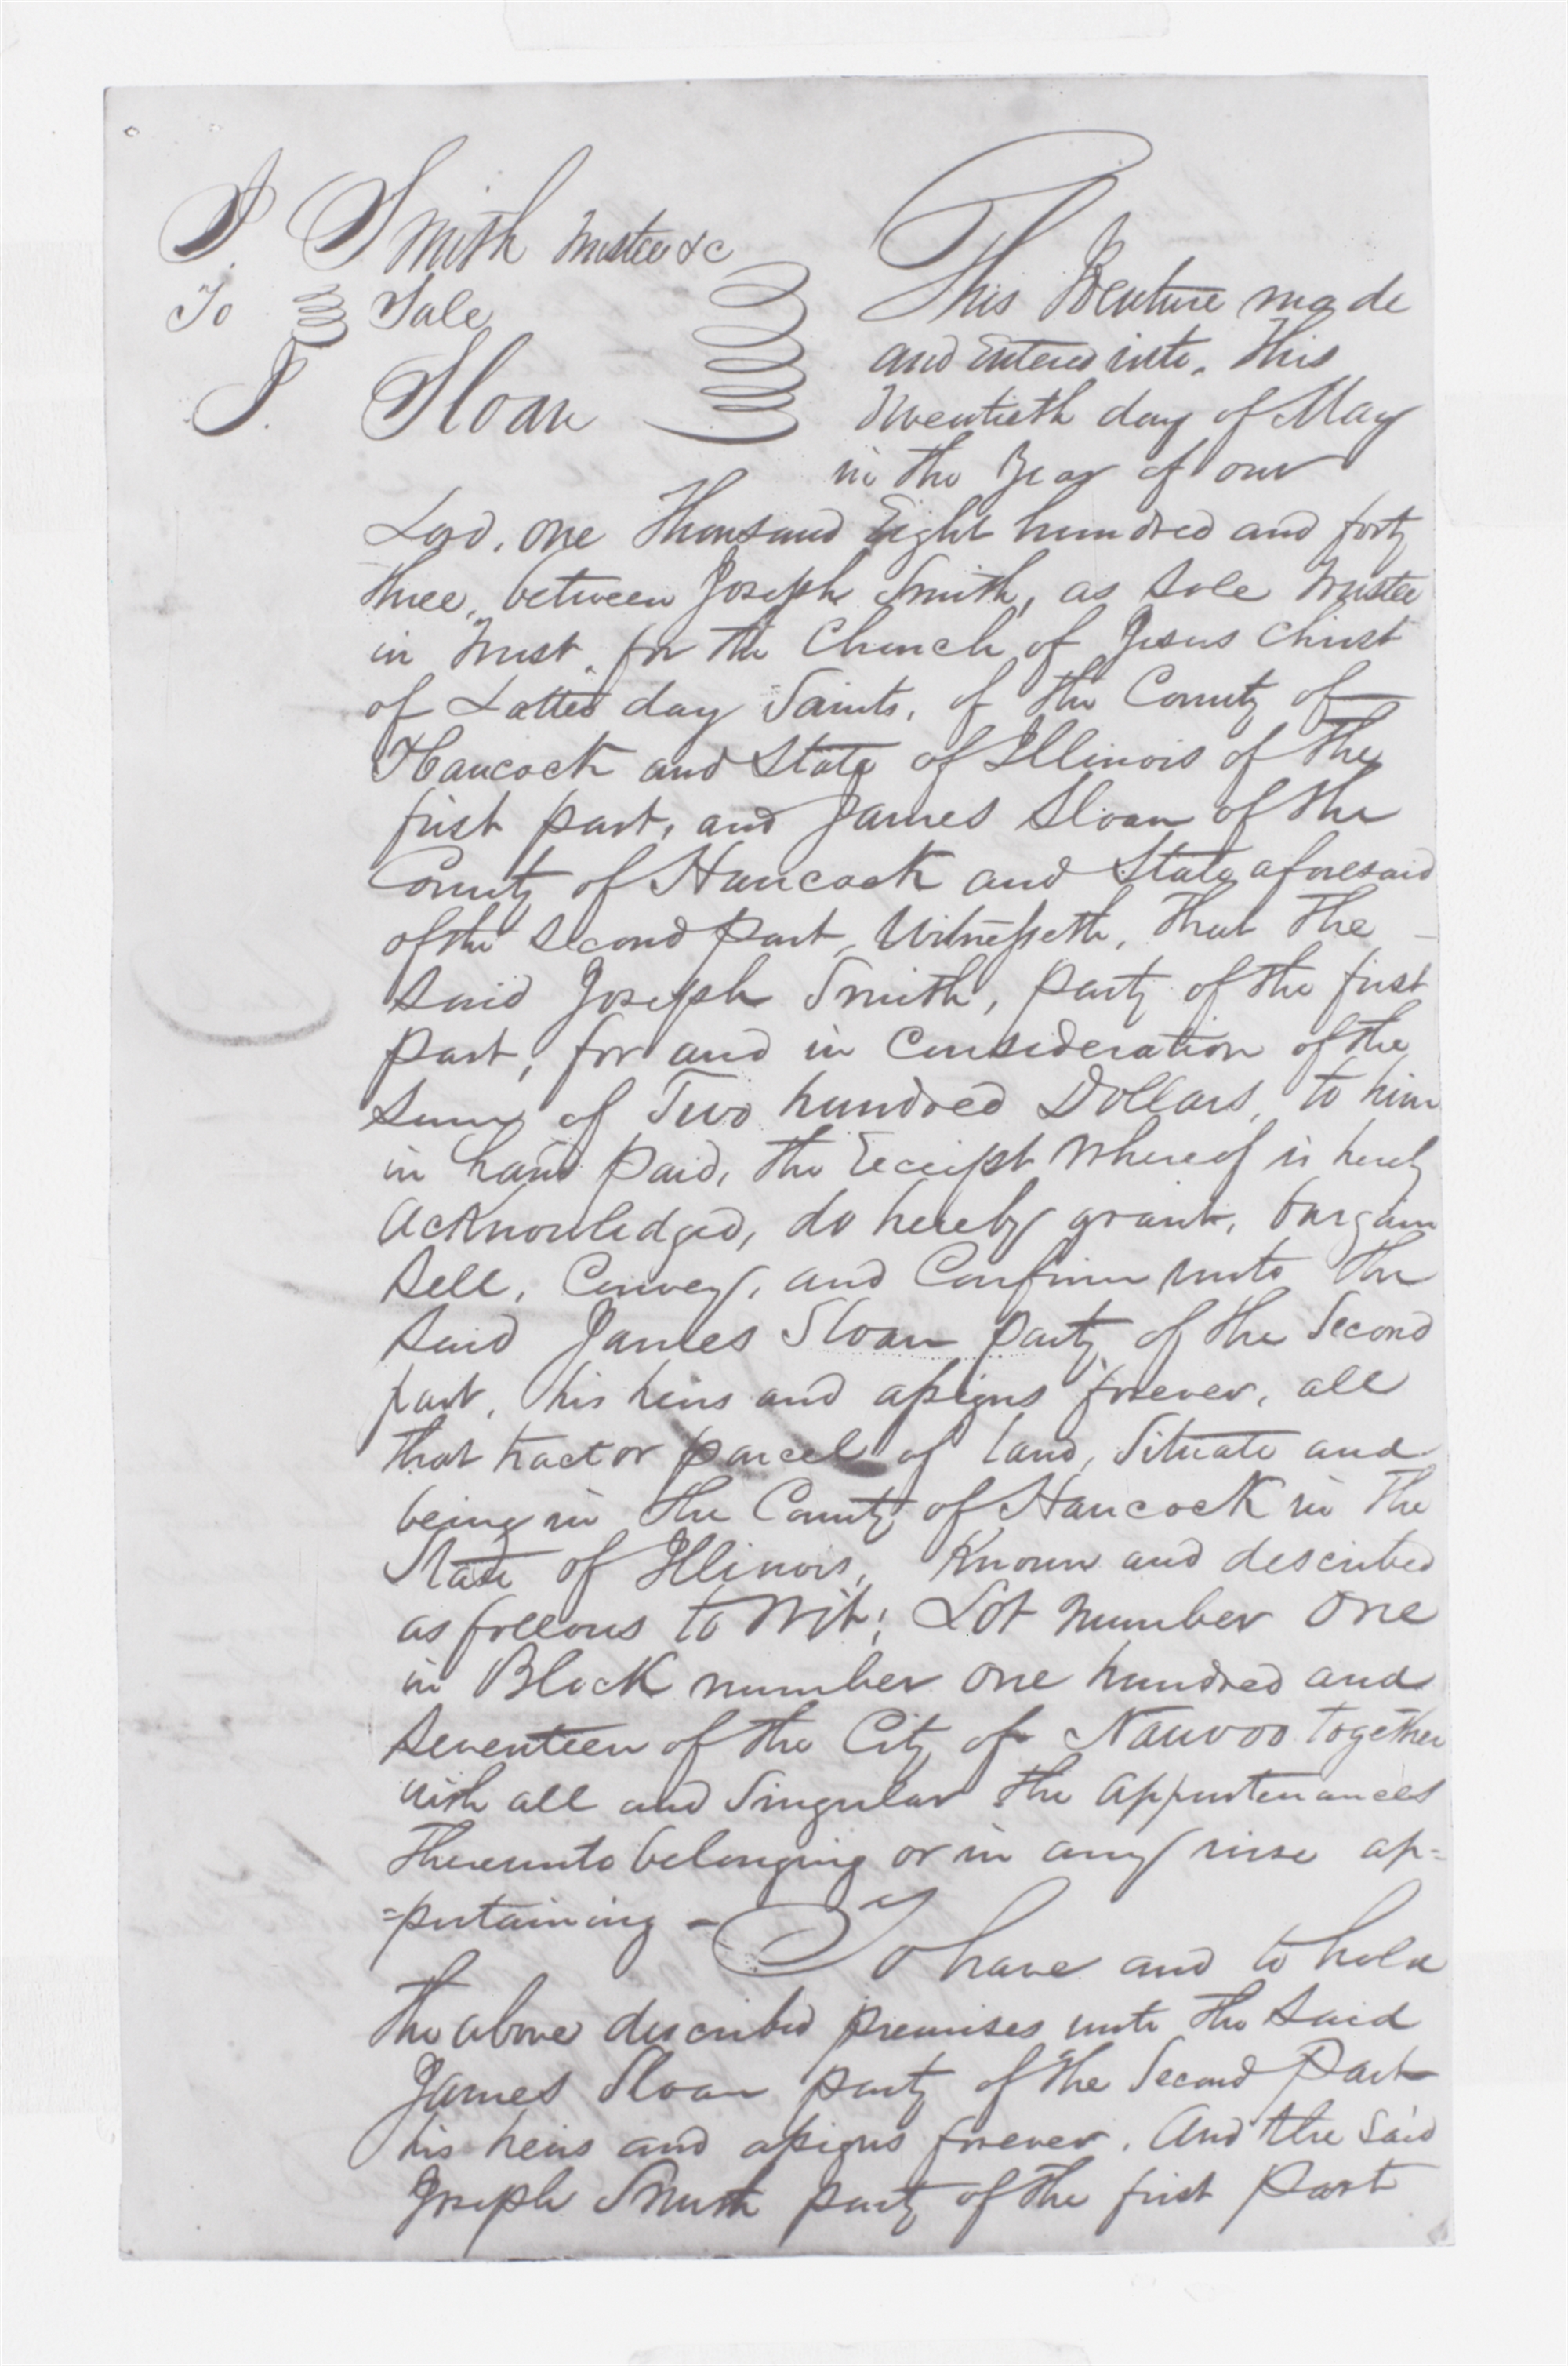 J Smith Trustee &c
To Sale
J. Sloan
This Indenture made
and entered into, this
Twentieth day of May
in the Year of our
Lord, one Thousand Eight hundred and forty
three, between Joseph Smith, as sole Trustee
in Trust, for the Church of Jesus Christ
of Latter day Saints, of the County of
Hancock and State of Illinois of the
first part, and James Sloan of the
County of Hancock and State aforesaid
of the second part, Witnesseth, That the
said Joseph Smith, party of the first
part, for and in Consideration of the
sum of Two hundred Dollars, to him
in hand paid, the receipt whereof is hereby
acknowledged, do hereby grant, bargain
sell, Convey, and Confirm unto the
said James Sloan party of the Second
part, his heirs and assigns forever, all
that tract or parcel of land, Situate and
being in the County of Hancock in the
State of Illinois, Known and described
as follows to Wit; Lot number One
in Block number one hundred and
seventeen of the City of Nauvoo together
with all and Singular the appurtenances
thereunto belonging or in any wise ap=
=pertaining - To have and to hold
the above described premises unto the said
James Sloan party of the Second Part
his heirs and assigns forever. And the said
Joseph Smith party of the first Part